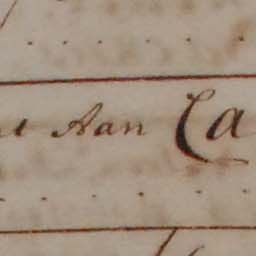 Aan Ca